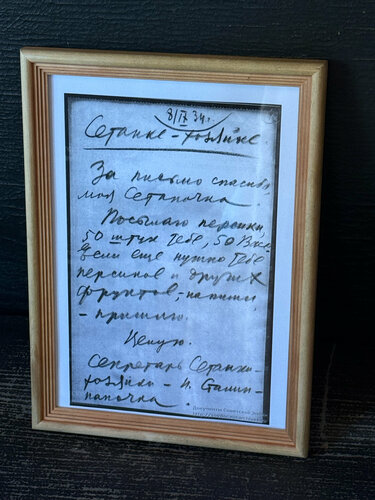 8/IX 34г.
Сетанке-хозяйке.
За письмо спасибо,
моя Сетаночка.
Посылаю персики,
50 штук тебе, 50 Васе.
Если еще нужно тебе
персиков и других
фруктов,-напиши,
- пришлю.
Целую.
Секретарь Сетанки-
хозяйки - И. Сталин
папочка.
Документы Советской эпохи